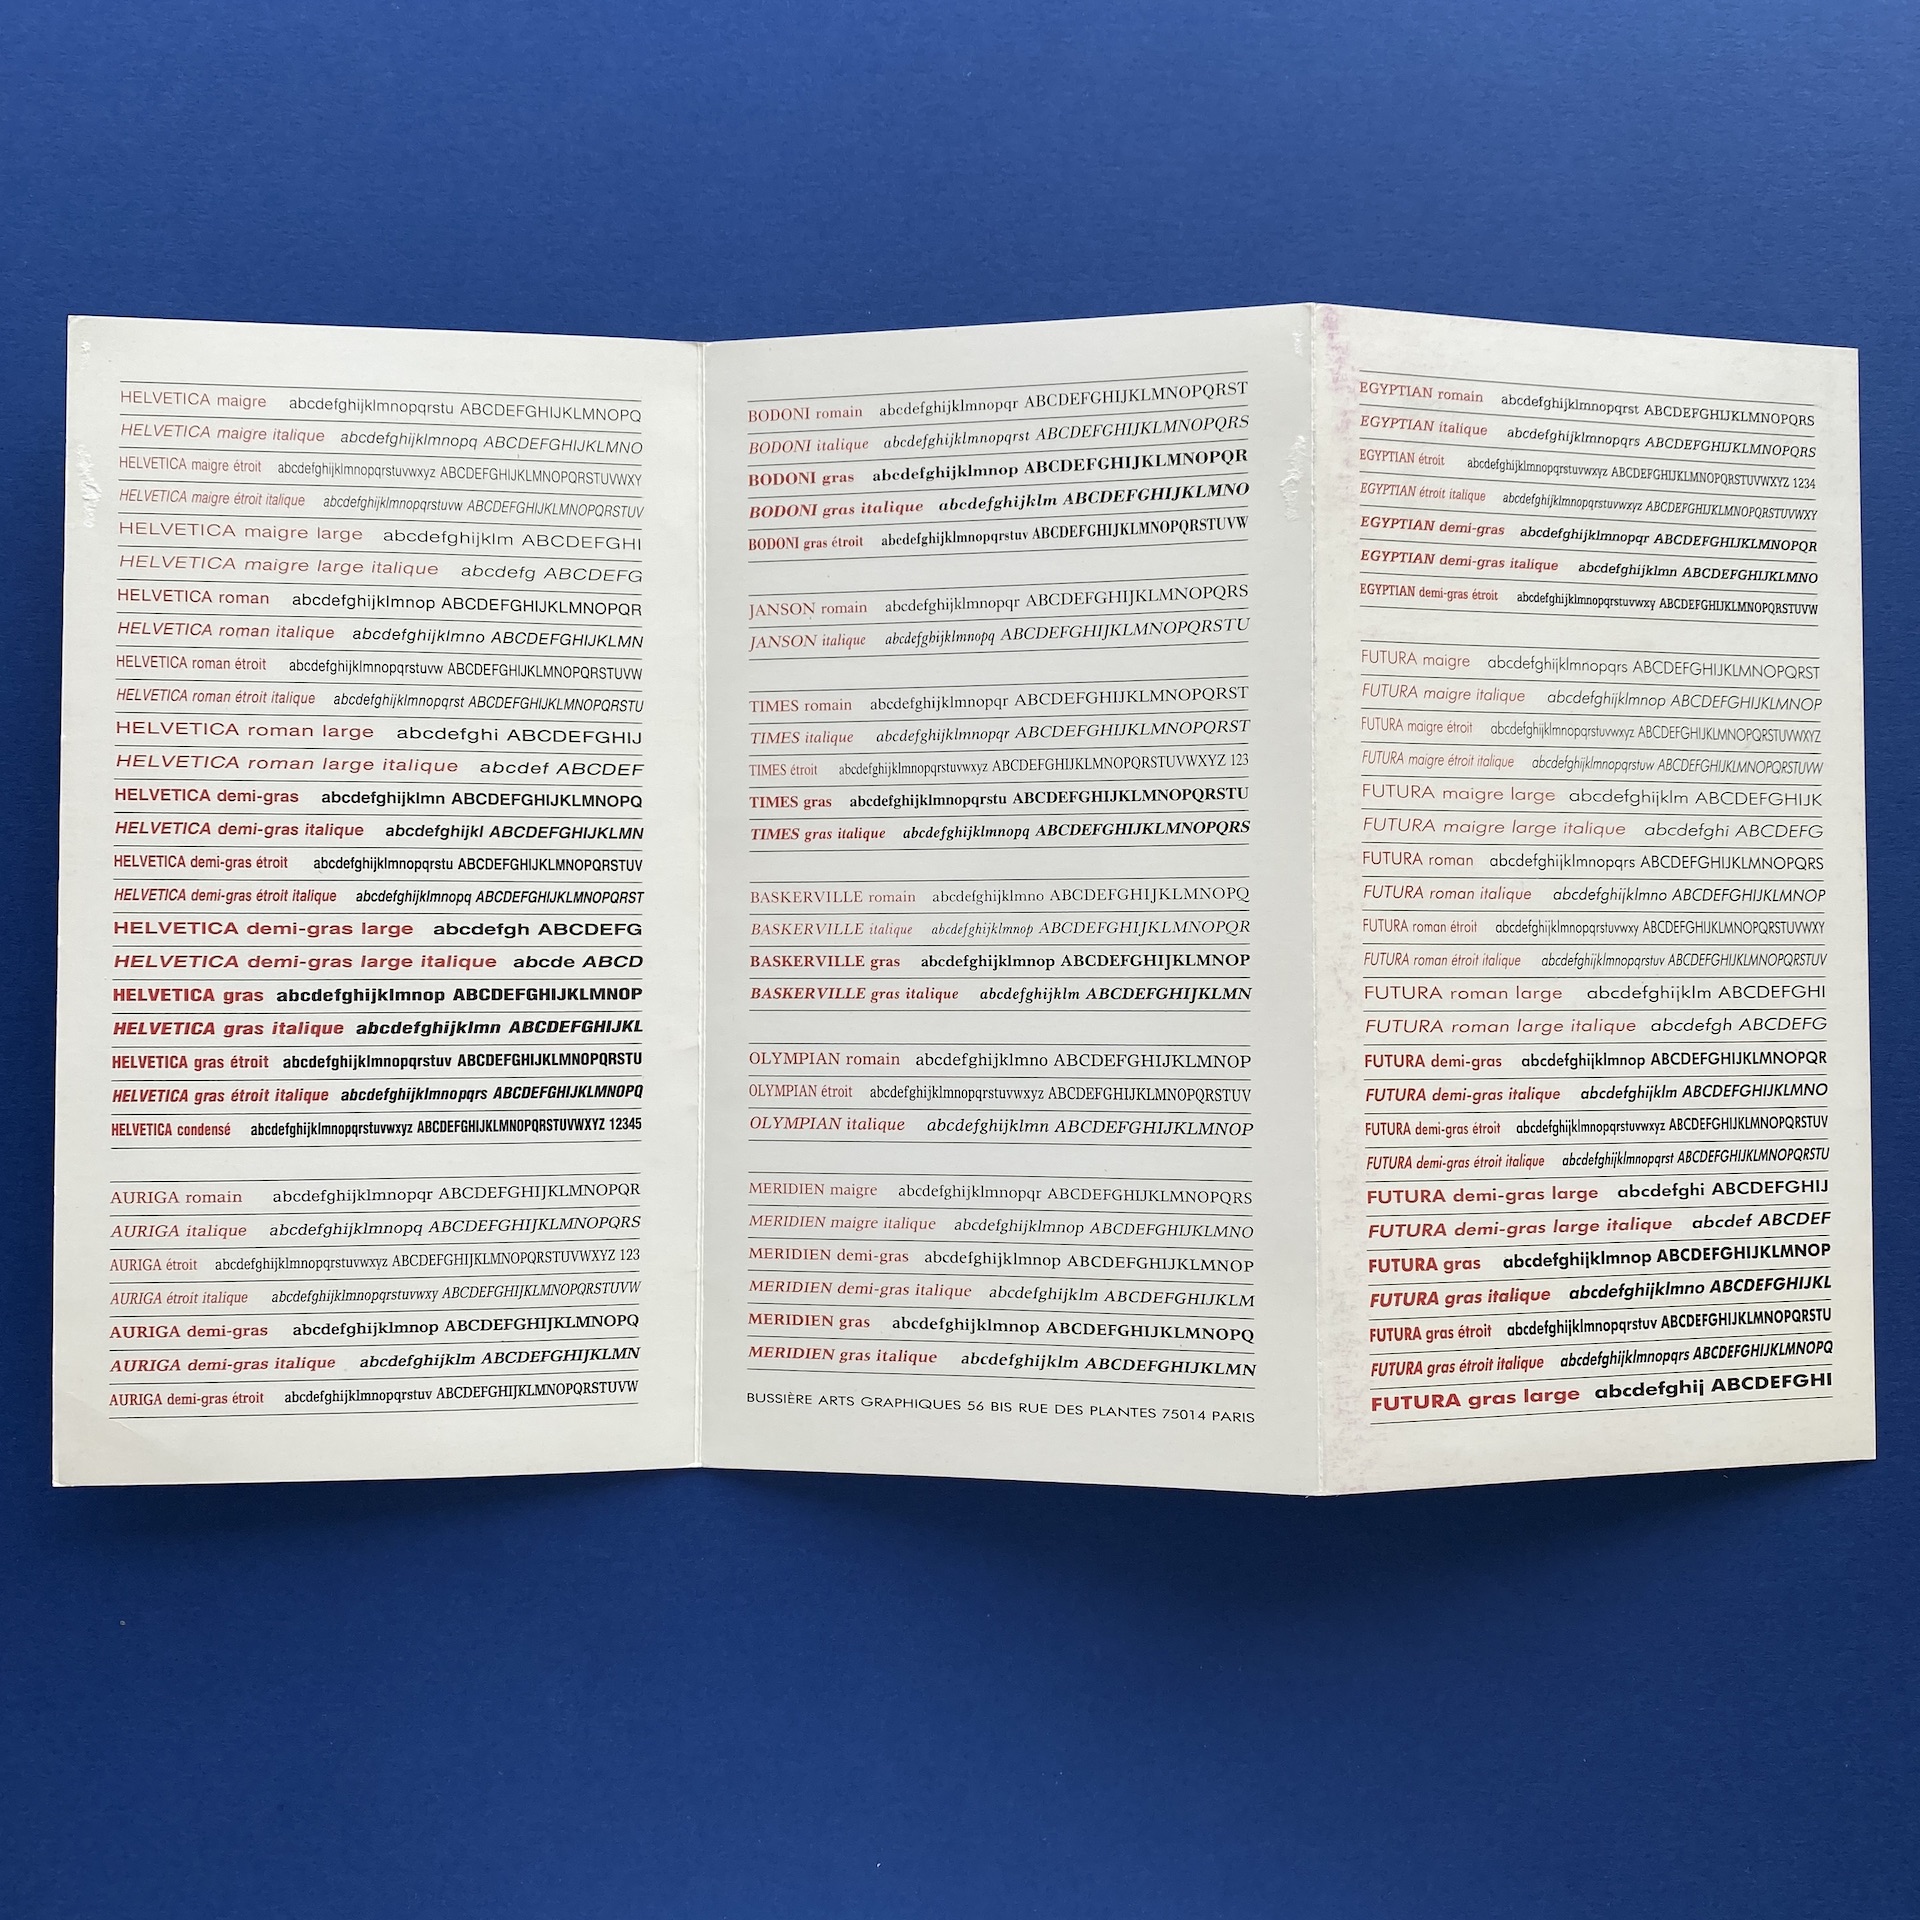 HELVETICA maigre abcdefghijklmnopqrstu ABCDEFGHIJKLMNOPQ
HELVETICA maigre italique abcdefghijklmnopq ABCDEFGHIJKLMNO
HELVETICA maigre étroit abcdefghijklmnopqrstuvwxyz ABCDEFGHIJKLMNOPQRSTUVWXY
HELVETICA maigre étroit italique abcdefghijklmnopqrstuvw ABCDEFGHIJKLMNOPQRSTUV
HELVETICA maigre large abcdefghijklm ABCDEFGHI
HELVETICA maigre large italique abcdefg ABCDEFG
HELVETICA roman abcdefghijklmnop ABCDEFGHIJKLMNOPQR
HELVETICA roman italique abcdefghijklmno ABCDEFGHIJKLMN
HELVETICA roman étroit abcdefghijklmnopqrstuvw ABCDEFGHIJKLMNOPQRSTUVW
HELVETICA roman étroit italique abcdefghijklmnopqrst ABCDEFGHIJKLMNOPQRSTU
HELVETICA roman large abcdefghi ABCDEFGHIJ
HELVETICA roman large italique abcdef ABCDEF
HELVETICA demi-gras abcdefghijklmn ABCDEFGHIJKLMNOPQ
HELVETICA demi-gras italique abcdefghijkl ABCDEFGHIJKLMN
HELVETICA demi-gras étroit abcdefghijklmnopqrstu ABCDEFGHIJKLMNOPQRSTUV
HELVETICA demi-gras étroit italique abcdefghijklmnopq ABCDEFGHIJKLMNOPQRST
HELVETICA demi-gras large abcdefgh ABCDEFG
HELVETICA demi-gras large italique abcde ABCD
HELVETICA gras abcdefghijklmnop ABCDEFGHIJKLMNOP
HELVETICA gras italique abcdefghijklmn ABCDEFGHIJKL
HELVETICA gras étroit abcdefghijklmnopqrstuv ABCDEFGHIJKLMNOPQRSTU
HELVETICA gras étroit italique abcdefghijklmnopqrs ABCDEFGHIJKLMNOPQ
HELVETICA condensé abcdefghijklmnopqrstuvwxyz ABCDEFGHIJKLMNOPQRSTUVWXYZ 12345
AURIGA romain abcdefghijklmnopqr ABCDEFGHIJKLMNOPQR
AURIGA italique abcdefghijklmnopq ABCDEFGHIJKLMNOPQRS
AURIGA étroit abcdefghijklmnopqrstuvwxyz ABCDEFGHIJKLMNOPQRSTUVWXYZ 123
AURIGA étroit italique abcdefghijklmnopqrstuvwxy ABCDEFGHIJKLMNOPQRSTUVW
AURIGA demi-gras abcdefghijklmnop ABCDEFGHIJKLMNOPQ
AURIGA demi-gras italique abcdefghijklm ABCDEFGHIJKLMN
AURIGA demi-gras étroit abcdefghijklmnopqrstuv ABCDEFGHIJKLMNOPQRSTUVW
BODONI romain abcdefghijklmnopqr ABCDEFGHIJKLMNOPQRST
BODONI italique abcdefghijklmnopqrst ABCDEFGHIJKLMNOPQRS
BODONI gras abcdefghijklmnop ABCDEFGHIJKLMNOPQR
BODONI gras italique abcdefghijklm ABCDEFGHIJKLMNO
BODONI gras étroit abcdefghijklmnopqrstuv ABCDEFGHIJKLMNOPQRSTUVW
JANSON romain abcdefghijklmnopqr ABCDEFGHIJKLMNOPQRS
JANSON italique abcdefghijklmnopq ABCDEFGHIJKLMNOPQRSTU
TIMES romain abcdefghijklmnopqr ABCDEFGHIJKLMNOPQRST
TIMES italique abcdefghijklmnopqr ABCDEFGHIJKLMNOPQRST
TIMES étroit abcdefghijklmnopqrstuvwxyz ABCDEFGHIJKLMNOPQRSTUVWXYZ 123
TIMES gras abcdefghijklmnopqrstu ABCDEFGHIJKLMNOPQRSTU
TIMES gras italique abcdefghijklmnopq ABCDEFGHIJKLMNOPQRS
BASKERVILLE romain abcdefghijklmno ABCDEFGHIJKLMNOPQ
BASKERVILLE italique abcdefghijklmnop ABCDEFGHIJKLMNOPQR
BASKERVILLE gras abcdefghijklmnop ABCDEFGHIJKLMNOP
BASKERVILLE gras italique abcdefghijklm ABCDEFGHIJKLMN
OLYMPIAN romain abcdefghijklmno ABCDEFGHIJKLMNOP
OLYMPIAN étroit abcdefghijklmnopqrstuvwxyz ABCDEFGHIJKLMNOPQRSTUV
OLYMPIAN italique abcdefghijklmn ABCDEFGHIJKLMNOP
MERIDIEN maigre abcdefghijklmnopqr ABCDEFGHIJKLMNOPQRS
MERIDIEN maigre italique abcdefghijklmnop ABCDEFGHIJKLMNO
MERIDIEN demi-gras abcdefghijklmnop ABCDEFGHIJKLMNOP
MERIDIEN demi-gras italique abcdefghijklm ABCDEFGHIJKLM
MERIDIEN gras abcdefghijklmnop ABCDEFGHIJKLMNOPQ
MERIDIEN gras italique abcdefghijklm ABCDEFGHIJKLMN
BUSSIÈRE ARTS GRAPHIQUES 56 BIS RUE DES PLANTES 75014 PARIS
EGYPTIAN romain abcdefghijklmnopqrst ABCDEFGHIJKLMNOPQRS
EGYPTIAN italique abcdefghijklmnopqrs ABCDEFGHIJKLMNOPQRS
EGYPTIAN étroit abcdefghijklmnopqrstuvwxyz ABCDEFGHIJKLMNOPQRSTUVWXYZ 1234
EGYPTIAN étroit italique abcdefghijklmnopqrstuvwxyz ABCDEFGHIJKLMNOPQRSTUVWXY
EGYPTIAN demi-gras abcdefghijklmnopqr ABCDEFGHIJKLMNOPQR
EGYPTIAN demi-gras italique abcdefghijklmn ABCDEFGHIJKLMNO
EGYPTIAN demi-gras étroit abcdefghijklmnopqrstuvwxy ABCDEFGHIJKLMNOPQRSTUVW
FUTURA maigre abcdefghijklmnopqrs ABCDEFGHIJKLMNOPQRST
FUTURA maigre italique abcdefghijklmnop ABCDEFGHIJKLMNOP
FUTURA maigre étroit abcdefghijklmnopqrstuvwxyz ABCDEFGHIJKLMNOPQRSTUVWXYZ
FUTURA maigre étroit italique abcdefghijklmnopqrstuvw ABCDEFGHIJKLMNOPQRSTUVW
FUTURA maigre large abcdefghijklm ABCDEFGHIJK
FUTURA maigre large italique abcdefghi ABCDEFG
FUTURA roman abcdefghijklmnopqrs ABCDEFGHIJKLMNOPQRS
FUTURA roman italique abcdefghijklmno ABCDEFGHIJKLMNOP
FUTURA roman étroit abcdefghijklmnopqrstuvwxy ABCDEFGHIJKLMNOPQRSTUVWXY
FUTURA roman étroit italique abcdefghijklmnopqrstuv ABCDEFGHIJKLMNOPQRSTUV
FUTURA roman large abcdefghijklm ABCDEFGHI
FUTURA roman large italique abcdefgh ABCDEFG
FUTURA demi-gras abcdefghijklmnop ABCDEFGHIJKLMNOPQR
FUTURA demi-gras italique abcdefghijklm ABCDEFGHIJKLMNO
FUTURA demi-gras étroit abcdefghijklmnopqrstuvwxyz ABCDEFGHIJKLMNOPQRSTUV
FUTURA demi-gras étroit italique abcdefghijklmnopqrst ABCDEFGHIJKLMNOPQRSTU
FUTURA demi-gras large abcdefghi ABCDEFGHIJ
FUTURA demi-gras large italique abcdef ABCDEF
FUTURA gras abcdefghijklmnop ABCDEFGHIJKLMNOP
FUTURA gras italique abcdefghijklmno ABCDEFGHIJKL
FUTURA gras étroit abcdefghijklmnopqrstuv ABCDEFGHIJKLMNOPQRSTU
FUTURA gras étroit italique abcdefghijklmnopqrs ABCDEFGHIJKLMNOPQ
FUTURA gras large abcdefghij ABCDEFGHI